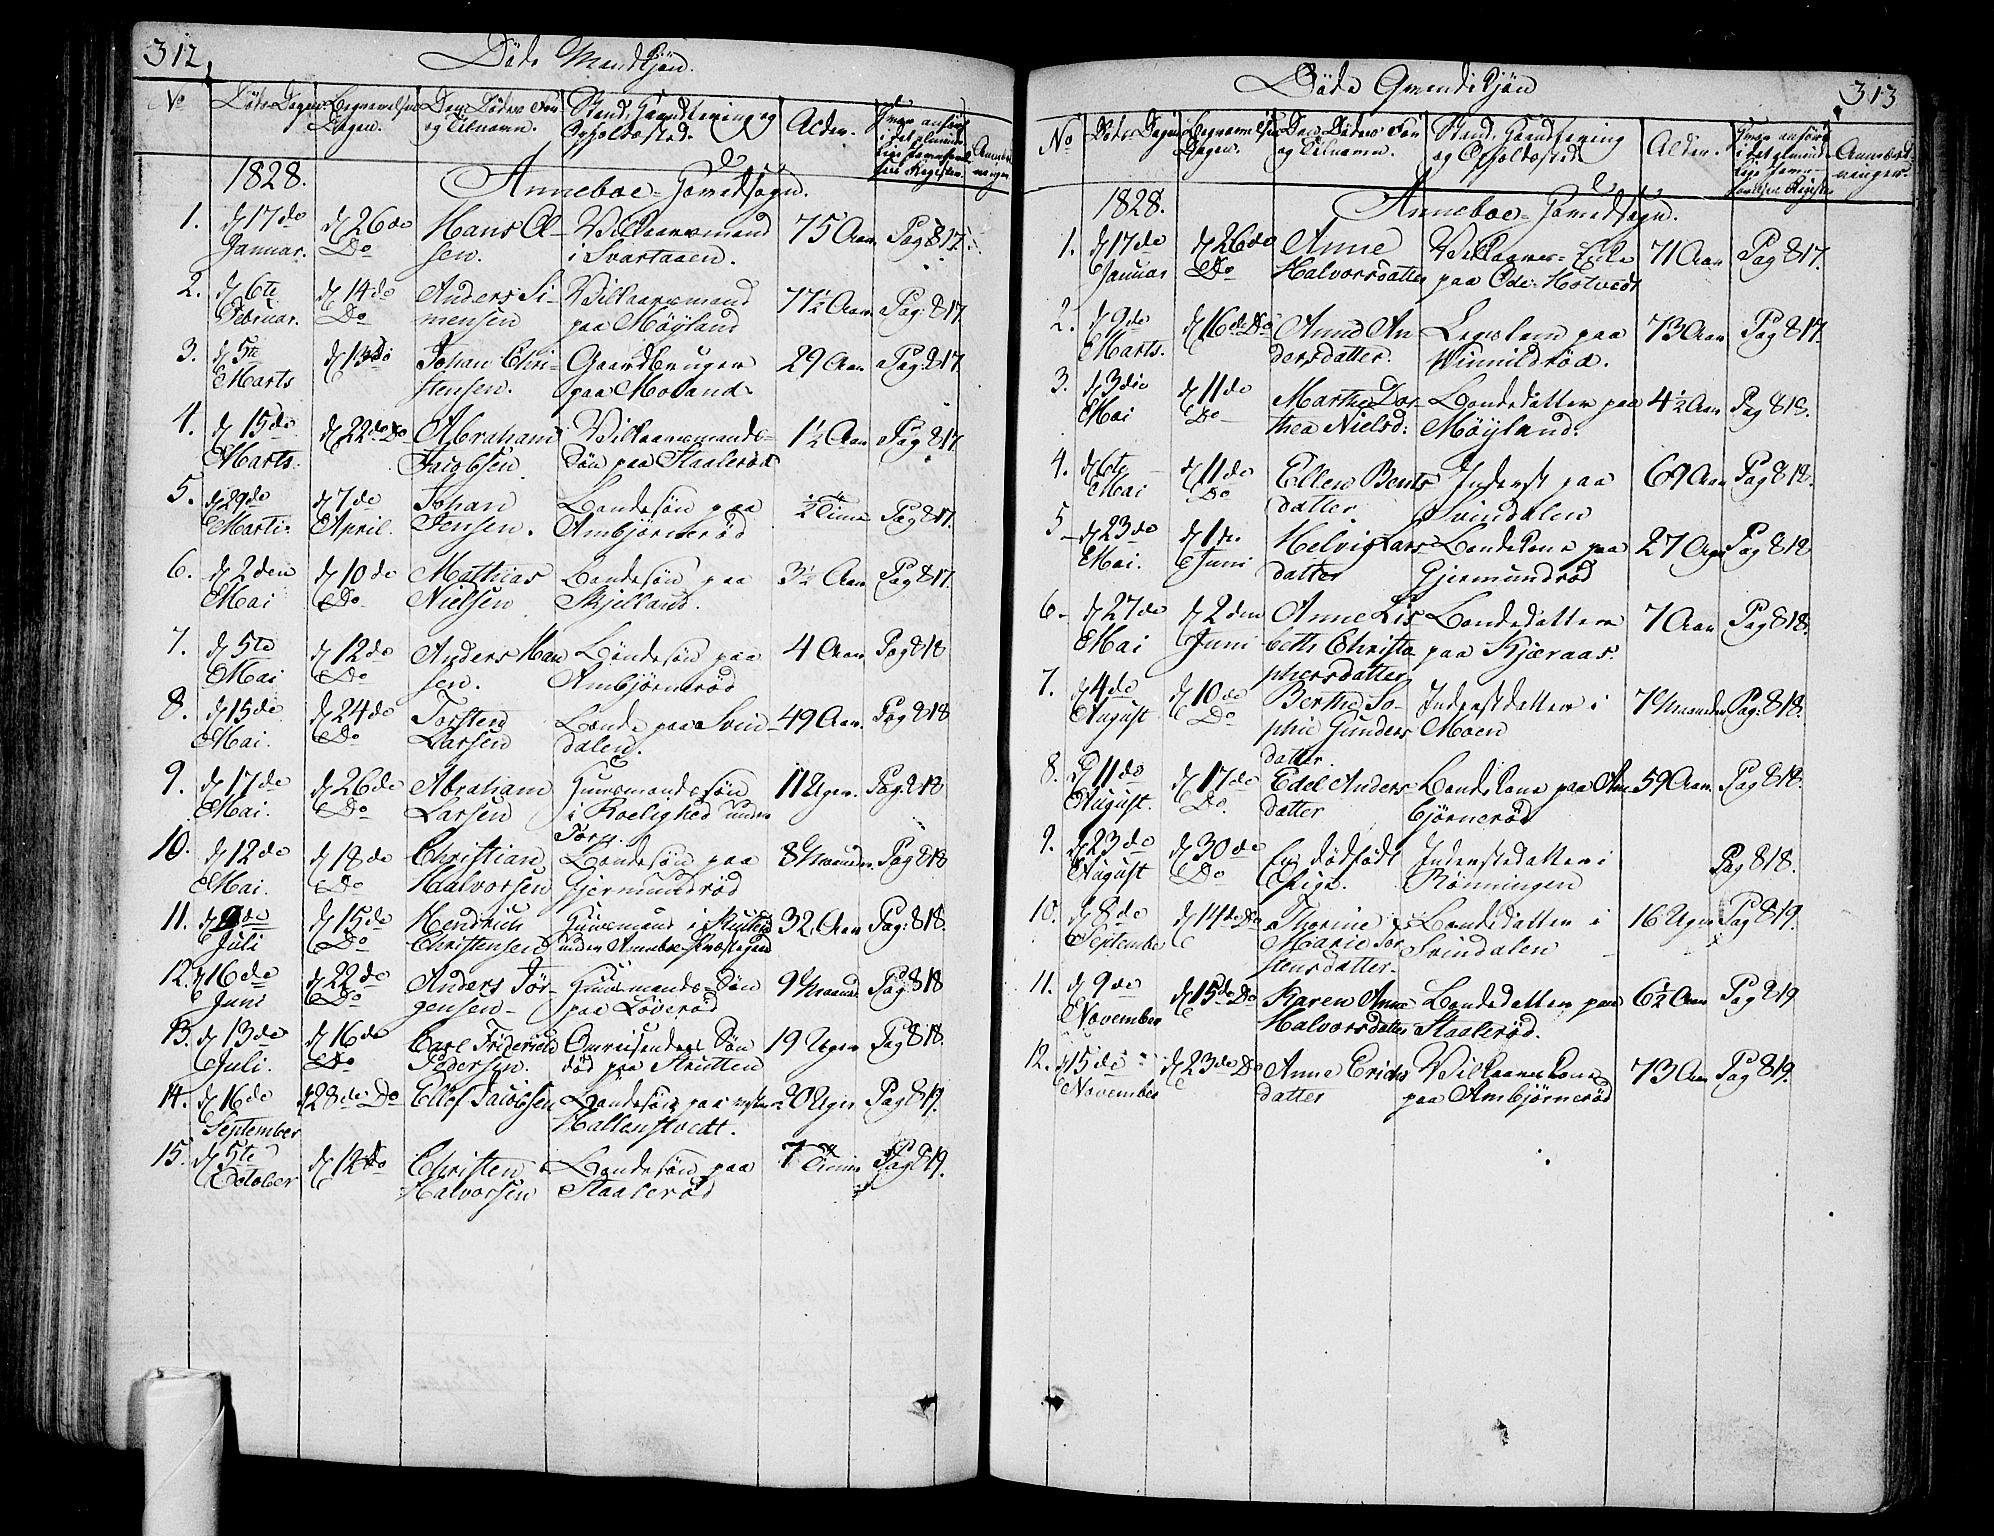 312
Døde Mandkjøn.
No
Døds Dagen
Begravelses
Dagen.
Den Dødes For
og Tilnavn.
Stand, Haandtering og
Opholdssted.
Alder.
Hvor anført
i det almind
lige Jævnførel
ses Register.
Anmærk
ninger
1828.
Anneboe-Hovedsogn.
1. d 17de
Januar.
d 26de
Do
Hans Ol-
sen.
Vilkaarsmand
i Svartaaen.
75 Aar
Pag 817.
2. d 6te
Februar.
d 14de
Do
Anders Si-
mensen
Vilkaarsmand
paa Møyland
77½ Aar
Pag. 817.
3. d 5te
Marts
d 13de
Johan Chri-
stensen.
Gaardbruger
paa Moland
29 Aar
Pag 817.
4. d 15de
Marts.
d 22de Do
Abraham
Jacobsen
Vilkaarsmands-
Søn paa Staalerød
1½ Aar
Pag 817.
5. d 29de
Marts
d 7de
April.
Johan
Jensen.
Bondesøn paa
Ambjørnerød
½ Time
Pag: 817.
6. d 2den
Mai
d 10de
Do
Mathias
Nielsen
Bondesøn paa
Skjelland.
3½ Aar
Pag 817.
7. d 5te
Mai
d 12de
Do
Anders Han
sen.
Bondesøn paa
Ambjørnerød
4 Aar
Pag 818
8. d 15de
Mai.
d 24de
Do
Torsten
Larsen
Bonde paa Svin-
dalen.
49 Aar
Pag 818
9. d 17de
Mai.
d 26de
Do
Abraham
Larsen
Huusmandssøn
i Roelighed under
Torp.
11 Uger.
Pag. 818
10. d 12de
Mai.
d 18de
Do
Christian
Halvorsen
Bondesøn paa
Gjermundrød
8 Maaneder
Pag. 818
11. d 9de
Juli
d 15de
Do
Hendrich
Christensen
Huusmand i
under Præstegaard
32 Aar
Pag: 818.
12. d 16de
Juni
d 22de
Do
Anders Jør-
gensen-
Huusmands-Søn
paa Løverød
9 Maaned.
Pag. 818
13. d 13de
Juli.
d 16de
Do
Carl Friderich
Pedersen.
Omreisendes Søn
død paa Strutten
19 Uger
Pag 818.
14. d 16de
September
d 28de Do
Ellef Jacobsen
Bondesøn paa
Hallenstvedt.
20 Uger
Pag 819.
15. d 5te
October
d 12do
Christen
Halvorsen
Bondesøn paa
Staalerød
7 Timer
Pag 819.
313
Døde Qvindekjøn
No
Døds Dagen
Begravelses
Dagen.
Den Dødes For
og Tilnavn.
Stand, Haandtering
og Opholdssted
Alder.
Hvor anført
i det almind
lige Jævn-
førelses Register
Anmærk
ninger.
1828.
Anneboe-Hovedsogn.
1. d 17de
Januar
d 26de
Do
Anne
Halvorsdatter
Vilkaars-Enke
paa Øde-Hotvedt
71 Aar
Pag 817.
2. d 9de
Marts.
d 16de Do
Anne An
dersdatter.
Legslem paa
Wimildrød.
73 Aar
Pag 817.
3. d 3die
Mai
d 11de
Do
Marthe Dor-
thea Nielsd:
Bondedatter paa
Møyland.
4½ Aar
Pag 818.
4. d 6te
Mai
d 11de
Do
Ellen Bents
datter
Inderst paa
Svindalen
69 Aar
Pag 818.
5 d 23de
Mai.
d 1ste
Juni
Helvig Lars
datter
Bondekone paa
Gjermundrød
27 Aar
Pag 818
6- d 27de
Mai
d 2den
Juni
Anne Lis
beth Christo
phersdatter
Bondedatter
paa Kjæraas.
7 Aar
Pag 818.
7. d 4de
August
d 10de
Do
Berthe So-
phie Gunders
datter.
Inderstdatter i
Moen
7 Maaneder
Pag: 818.
8. d 11de
August.
d 17de
Do.
Edel Anders
datter
Bondekone paa Am
bjørnerød
59 Aar
Pag 818.
9. d 23de
August
d 30de
Do
En dødfødt
Pige.
Inderstedatter i
Rønningen
Pag 818.
10. d 8de
September
d 14de Do
Thorine
Marie Tor
stensdatter.
Bondedatter i
Svindalen
16 Uger
Pag 819.
11. d 9de
November
d 15de Do
Karen Anne
Halvorsdatter
Bondedatter paa
Staalerød.
6½ Aar
Pag 819
12. d 15de
November
d 23de Do
Anne Erichs
datter
Vilkaarskone
paa Ambjørnerød
73 Aar
Pag 819.